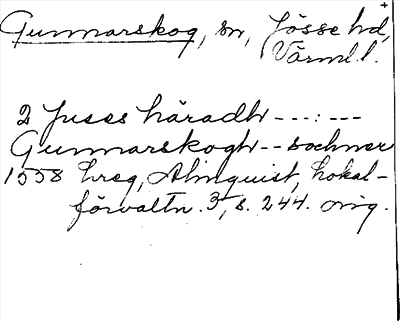 Gunnarskog, sn, Jösse hd,
Värml. l.
2 Juses häradh ---:---
Gunnarskogh -- sochner
1558 hreg, Almquist, Lokal-
förvaltn. 3, s. 244. orig.